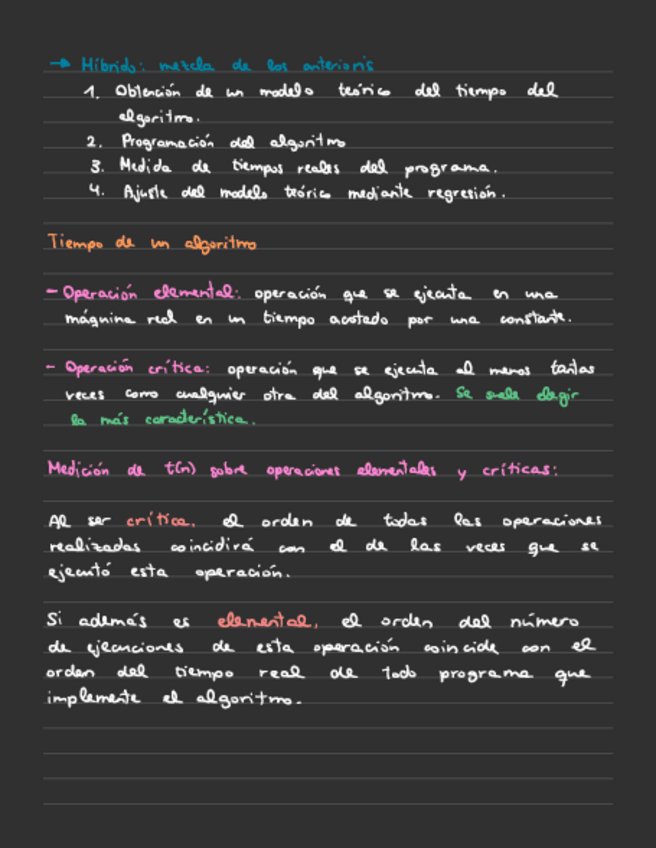 → Híbrido: mezcla de los anteriores
1. Obtención de un modelo teórico del tiempo del
algoritmo.
2. Programación del algoritmo
3. Medida de tiempos reales del programa.
4. Ajuste del modelo teórico mediante regresión.
Tiempo de un algoritmo
- Operación elemental: operación que se ejecuta en una
máquina real en un tiempo acotado por una constante.
- Operación crítica: operación que se ejecuta al menos tantas
veces como cualquier otra del algoritmo. Se suele elegir
la más característica.
Medición de t(n) sobre operaciones elementales y críticas:
Al ser crítica, el orden de todas las operaciones
realizadas coincidirá con el de las veces que se
ejecutó esta operación.
Si además es elemental, el orden del número
de ejecuciones de esta operación coincide con el
orden del tiempo real de todo programa que
implemente el algoritmo.